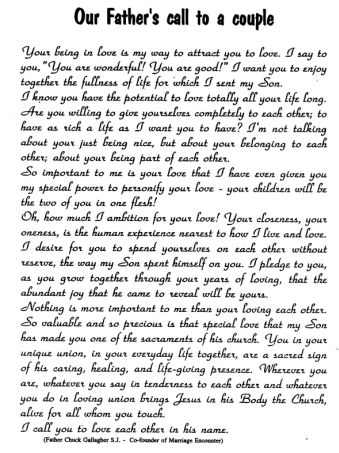 Our Father's call to a couple
Your being in love is my way to attract you to love. I say to
you, "You are wonderful! You are good!" I want you to enjoy
together the fullness of life for which I sent my Son.
I know you have the potential to love totally all your life long.
Are you willing to give yourselves completely to each other; to
have as rich a life as I want you to have? I'm not talking
about your just being nice, but about your belonging to each
other; about your being part of each other.
So important to me is your love that I have even given you
my special power to personify your love - your children will be
the two of you in one flesh!
Oh, how much I ambition for your love! Your closeness, your
oneness, is the human experience nearest to how I live and love.
I desire for you to spend yourselves on each other without
reserve, the way my Son spent himself on you. I pledge to you,
as you grow together through your years of loving, that the
abundant joy that he came to reveal will be yours.
Nothing is more important to me than your loving each other.
So valuable and so precious is that special love that my Son
has made you one of the sacraments of his church. You in your
unique union, in your everyday life together, are a sacred sign
of his caring, healing, and life-giving presence. Wherever you
are, whatever you say in tenderness to each other and whatever
you do in loving union brings Jesus in his Body the Church,
alive for all whom you touch.
I call you to love each other in his name.
(Father Chuck Gallagher S.J. - Co-founder of Marriage Encounter)